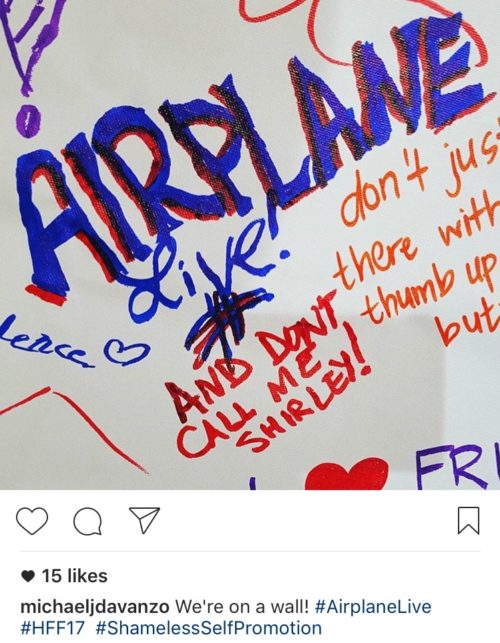 AIRPLANE
Live!
#
AND DONT
CALL ME
SHIRLEY!
don't
there with
thumb up
FRI
15 likes
michaeljdavanzo We're on a wall! #AirplaneLive
#HFF17 #ShamelessSelfPromotion